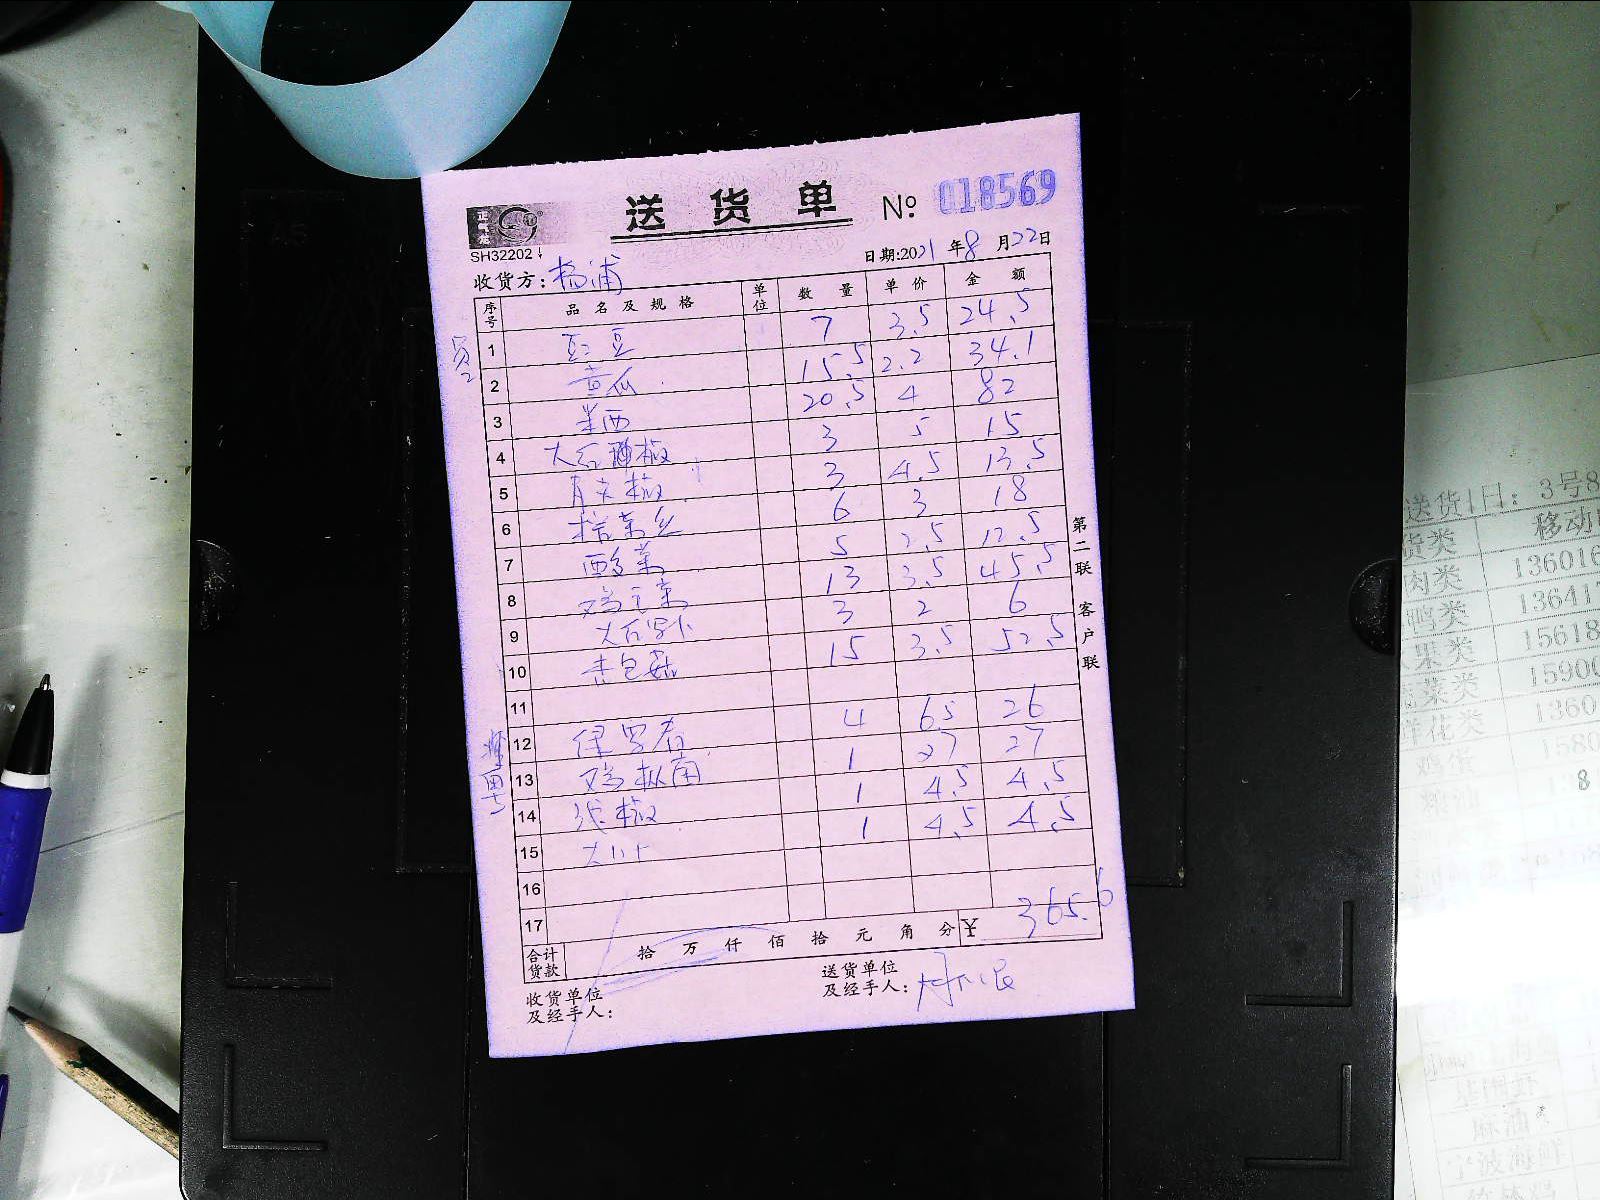 送货单 № 018569
正气龙
SH32202
日期:2021年8月22日
收货方:杨浦
序号 品名及规格 单位 数量 单价 金额
1 豇豆 7 3.5 24.5
2 黄瓜 15.5 2.2 34.1
3 20.5 4 82
4 3 5 15
5 3 4.5 13.5
6 榨菜丝 6 3 18
7 酸菜 5 2.5 12.5
8 鸡毛菜 13 3.5 45.5
9 3 2 6
10 杏包菇 15 3.5 52.5
11
12 4 6.5 26
13 鸡枞菌 1 27 27
14 线椒 1 4.5 4.5
15 1 4.5 4.5
16
17
合计货款 拾万仟佰拾元角分 ¥ 365.6
收货单位
及经手人:
送货单位
及经手人:
第二联 客户联
送货日: 3号8
货类 移动
肉类 136016
鸭类 13641
果类 15618
菜类 1590
鲜花类 1360
鸡蛋 1580
麻油
宁波海鲜